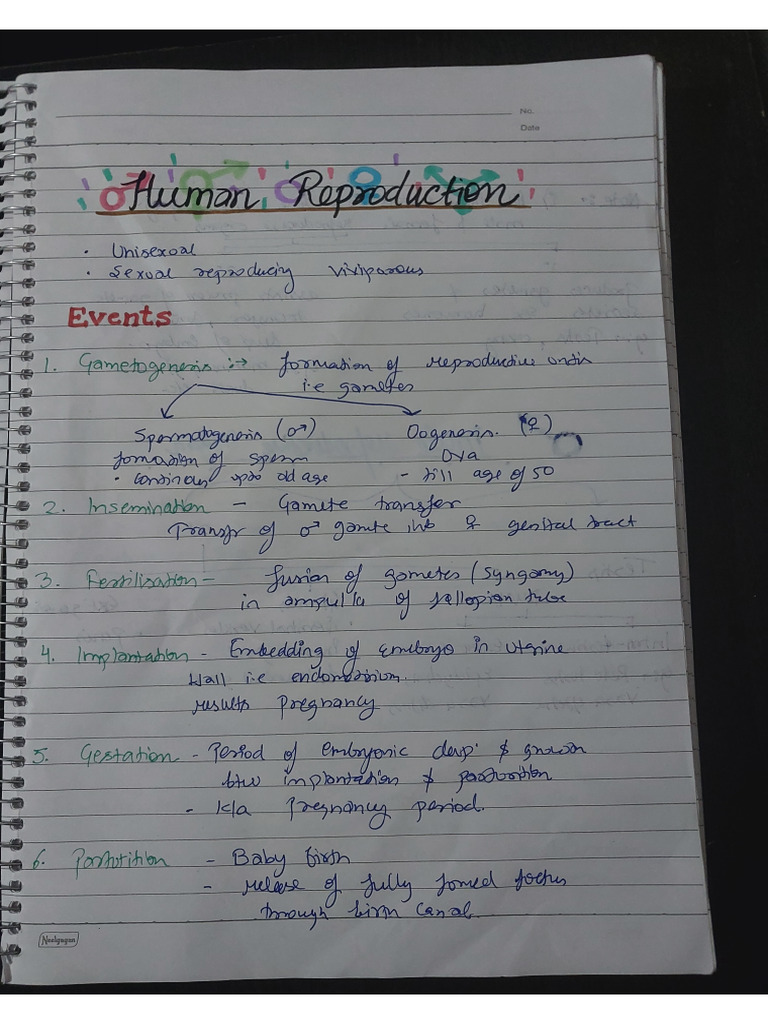 No.
Date
Human Reproduction
• Unisexual
• Sexual reproducing viviparous
Events
1. Gametogenesis :→ formation of reproductive units
i.e gametes
Spermatogenesis (♂) Oogenesis. (♀)
formation of sperm Ova
• Continous upto old age - till age of 50
2. Insemination - Gamete transfer
Transfr of ♂ gamte into ♀ genital tract
3. Fertilisation - fusion of gametes (Syngamy)
in ampulla of fallopian tube
4. Implantation - Embedding of embryo in uterine
Wall i.e endometrium.
results pregnancy
5. Gestation - Period of embryonic devp. & growth
btw implantation & parturition
- k/a Pregnancy period.
6. Parturition - Baby birth
- release of fully formed foetus
through birth canal
Neelgagan